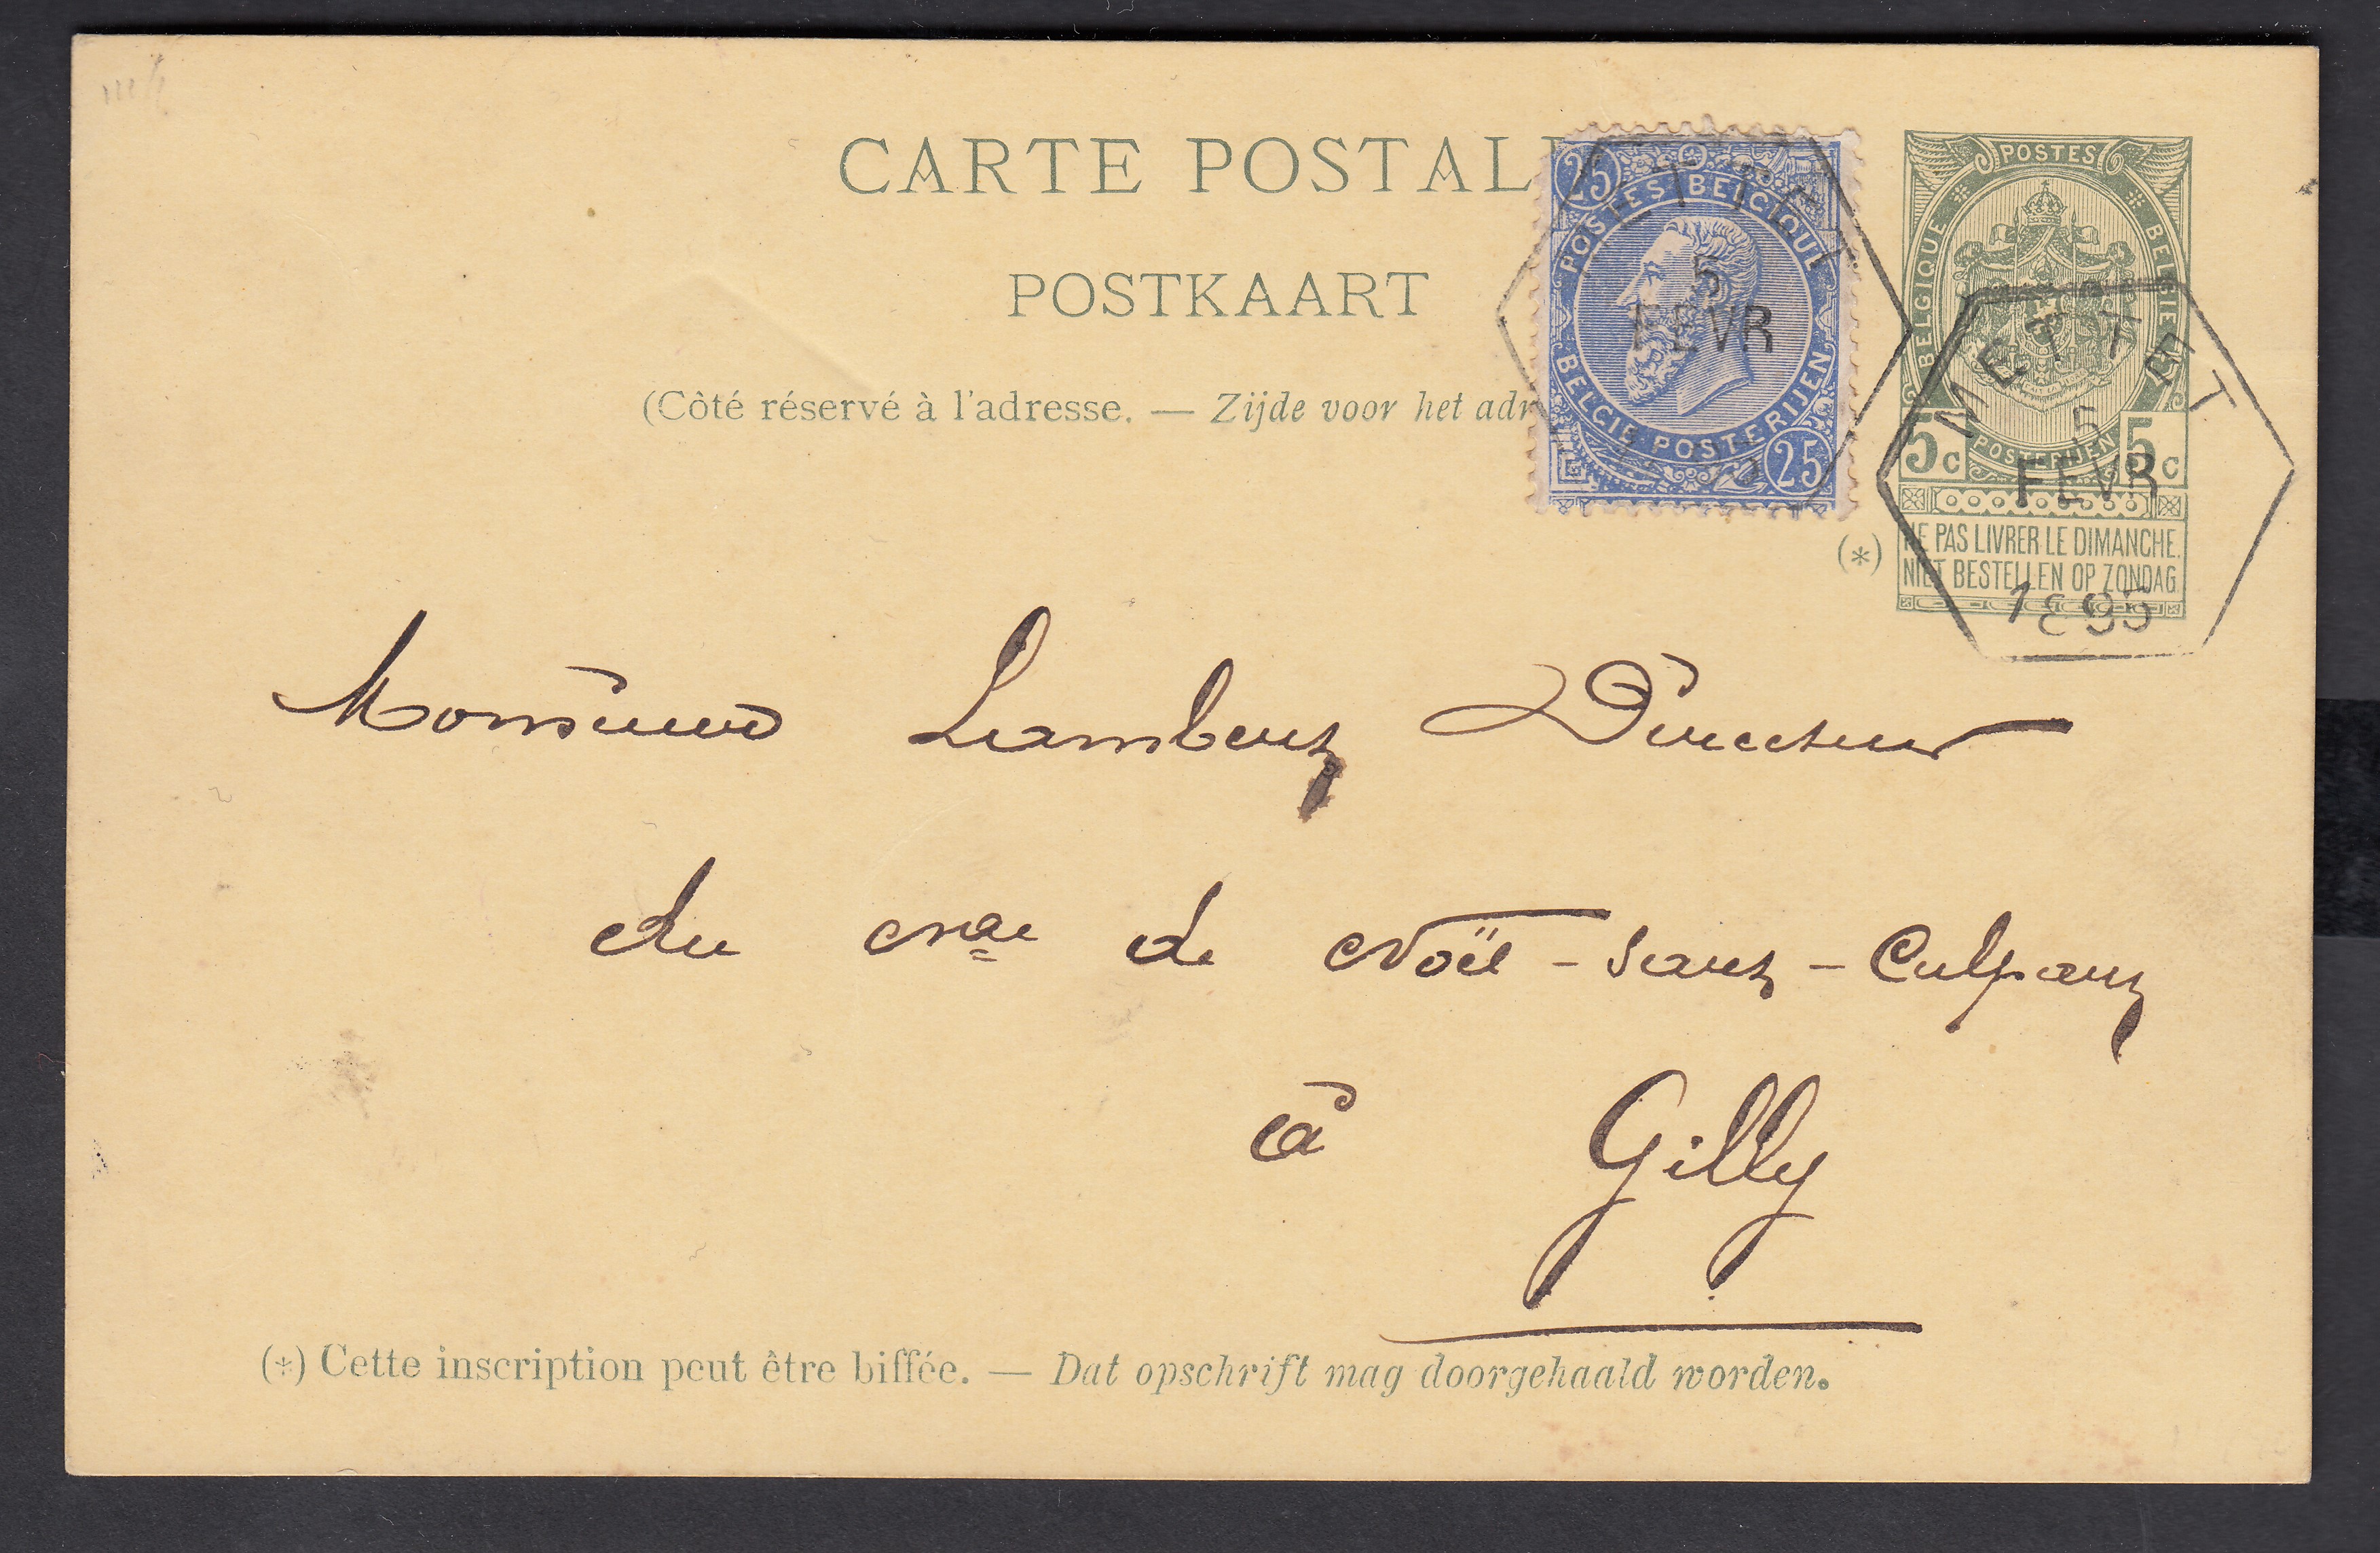 CARTE POSTAL
POSTKAART
(Côté réservé à l'adresse. — Zijde voor het adr
25
POSTES BELGIQUE
BELGIE POSTERIJEN
25
ETTET
5
FEVR
POSTES
BELGIQUE BELGIE
POSTERIJEN
5c 5c
NE PAS LIVRER LE DIMANCHE.
NIET BESTELLEN OP ZONDAG.
METTET
5
FEVR
1895
(*)
Monsieur Lambert Directeur
du de Noël-Sart-Culpart
à Gilly
(*) Cette inscription peut être biffée. — Dat opschrift mag doorgehaald worden.